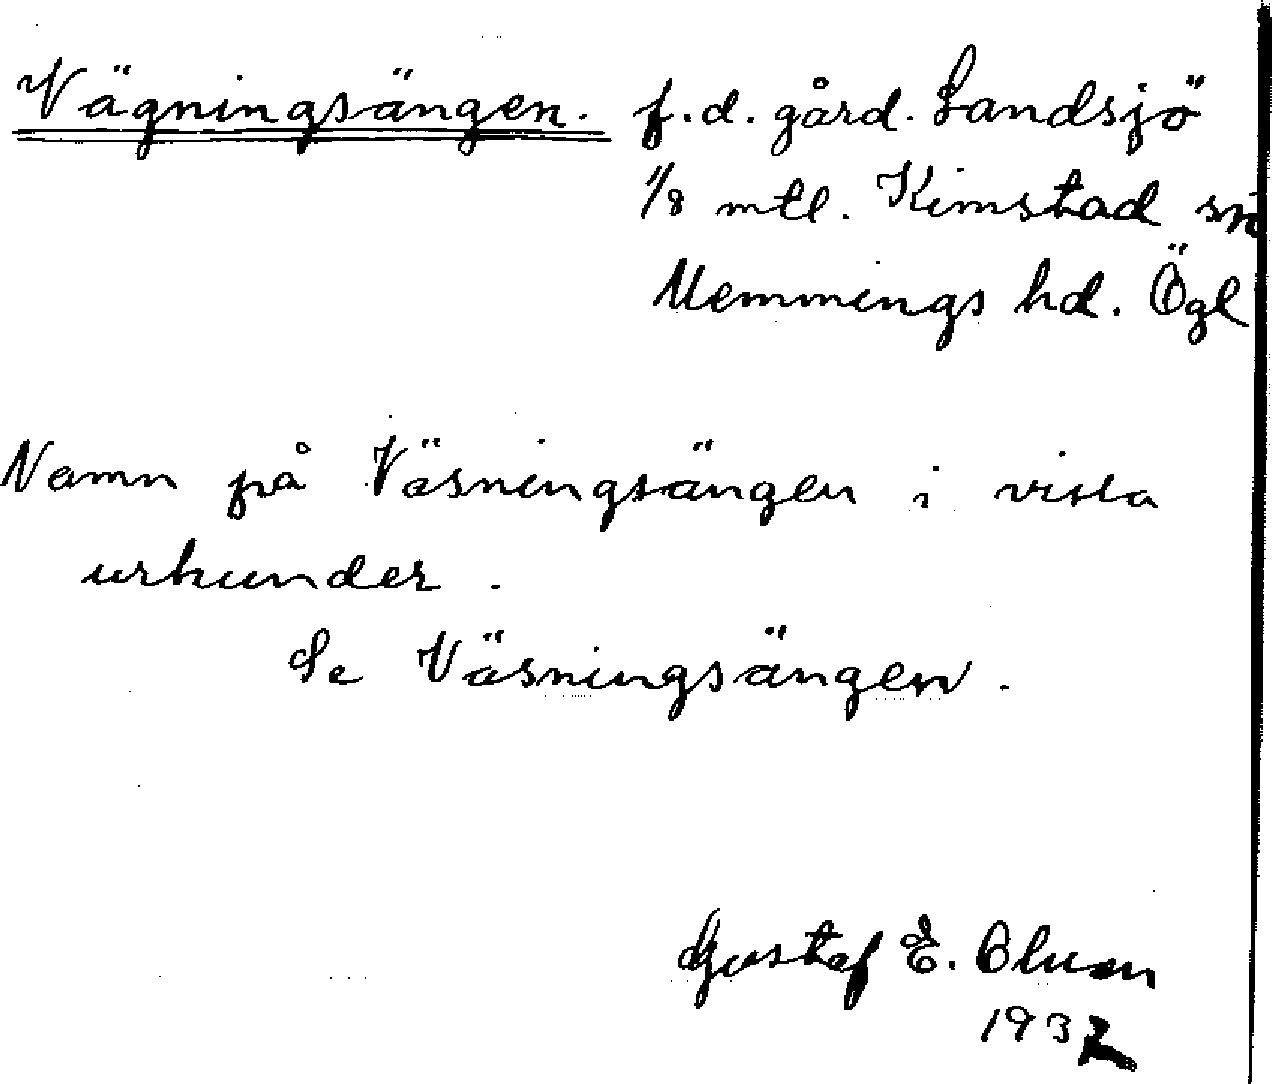 Vägningsängen. f.d. gård. Landsjö
1/8 mtl. Kimstad sn
Memmings hd. Ögl
Namn på Väsningsängen i vissa
urkunder.
Se Väsningsängen.
Gustaf E. Olsson
1932